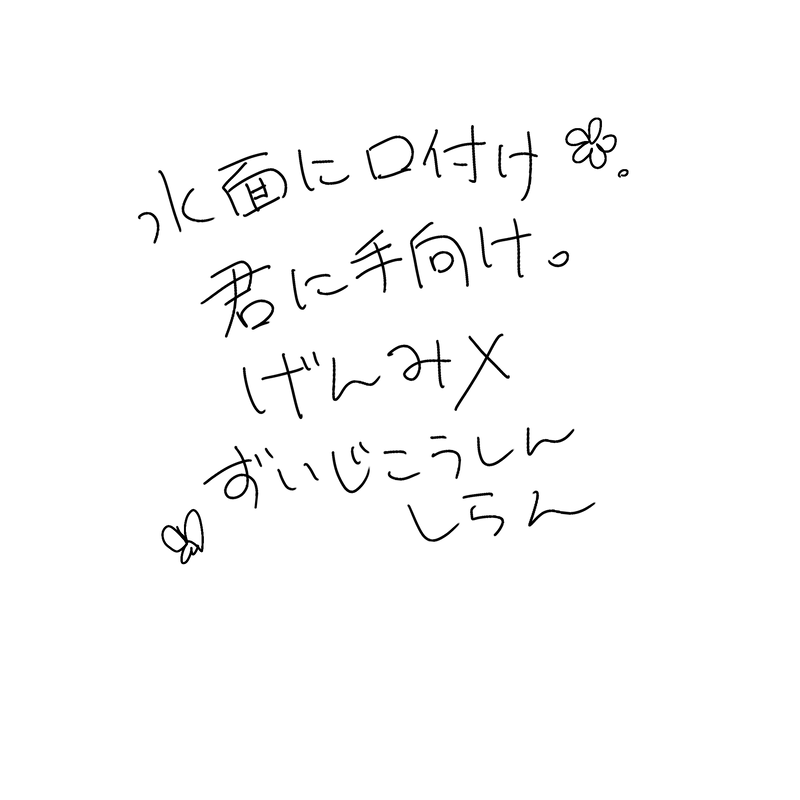 水面に口付け。
君に手向け。
げんみ×
ずいじこうしん
しらん